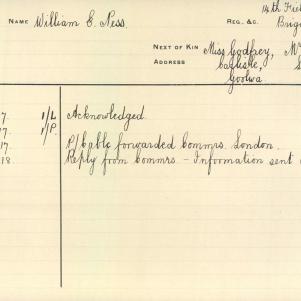 14th Fiel
NAME William C. Ness. REG. &C. Brig
NEXT OF KIN Miss Godfrey, M
ADDRESS Carlisle, S
Goolwa
7. 1/L Acknowledged.
17. 1/P.
17 P/Cable forwarded Commrs. London.
18. Reply from Commrs. - Information sent